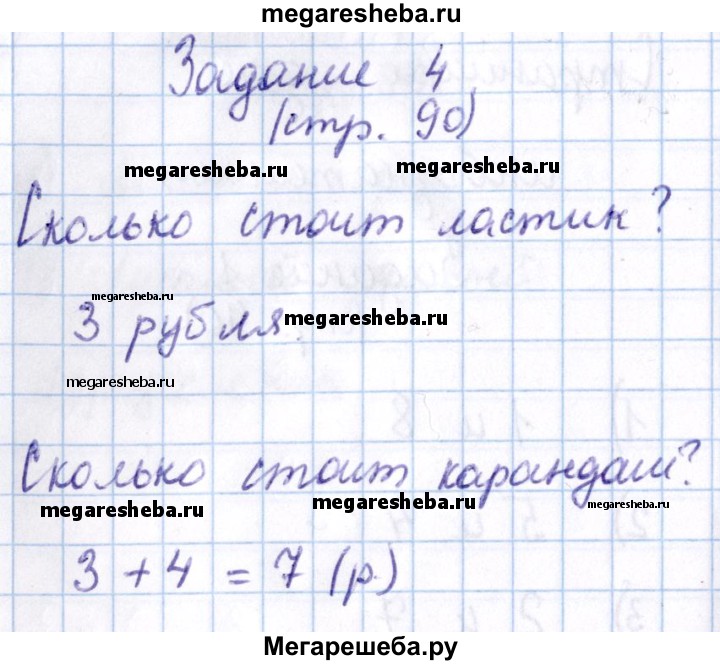 megaresheba.ru
Задание 4
(стр. 90)
megaresheba.ru megaresheba.ru
Сколько стоит ластик?
megaresheba.ru
3 рубля. megaresheba.ru
megaresheba.ru
Сколько стоит карандаш?
megaresheba.ru megaresheba.ru megaresheba.ru
3 + 4 = 7 (р.)
Мегарешеба.ру